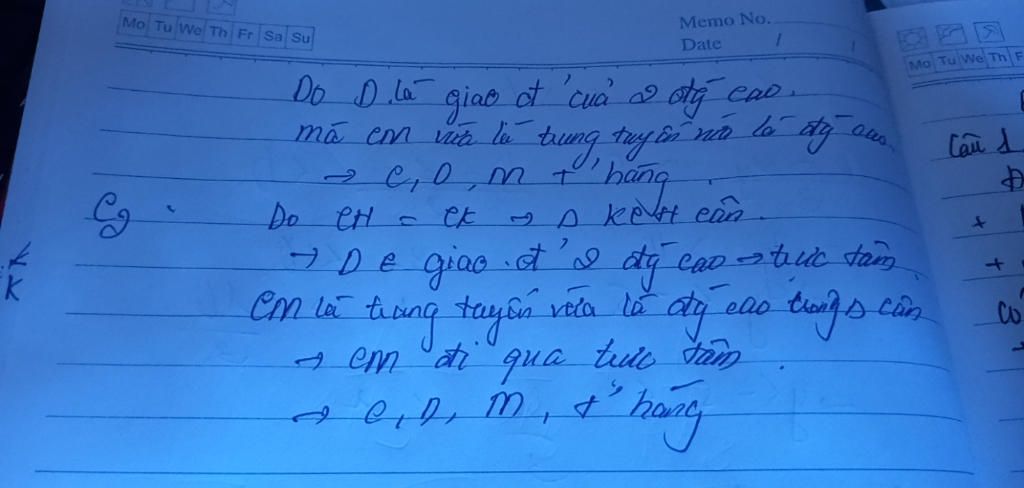 Mo Tu We Th Fr Sa Su
Memo No.
Date / /
Do D là giao đ' của 2 đg̃ cao.
mà CM vừa là trung tuyến vừa là đg̃ cao
→ C, D, M t' hàng.
Cg
Do CH = CK → Δ KCH cân.
→ D ∈ giao đ' 2 đg̃ cao → trực tâm
CM là trung tuyến vừa là đg̃ cao trong Δ cân
→ CM đi qua trực tâm.
→ C, D, M, t' hàng
K
Mo Tu We Th F
Câu 1
+
+
Có